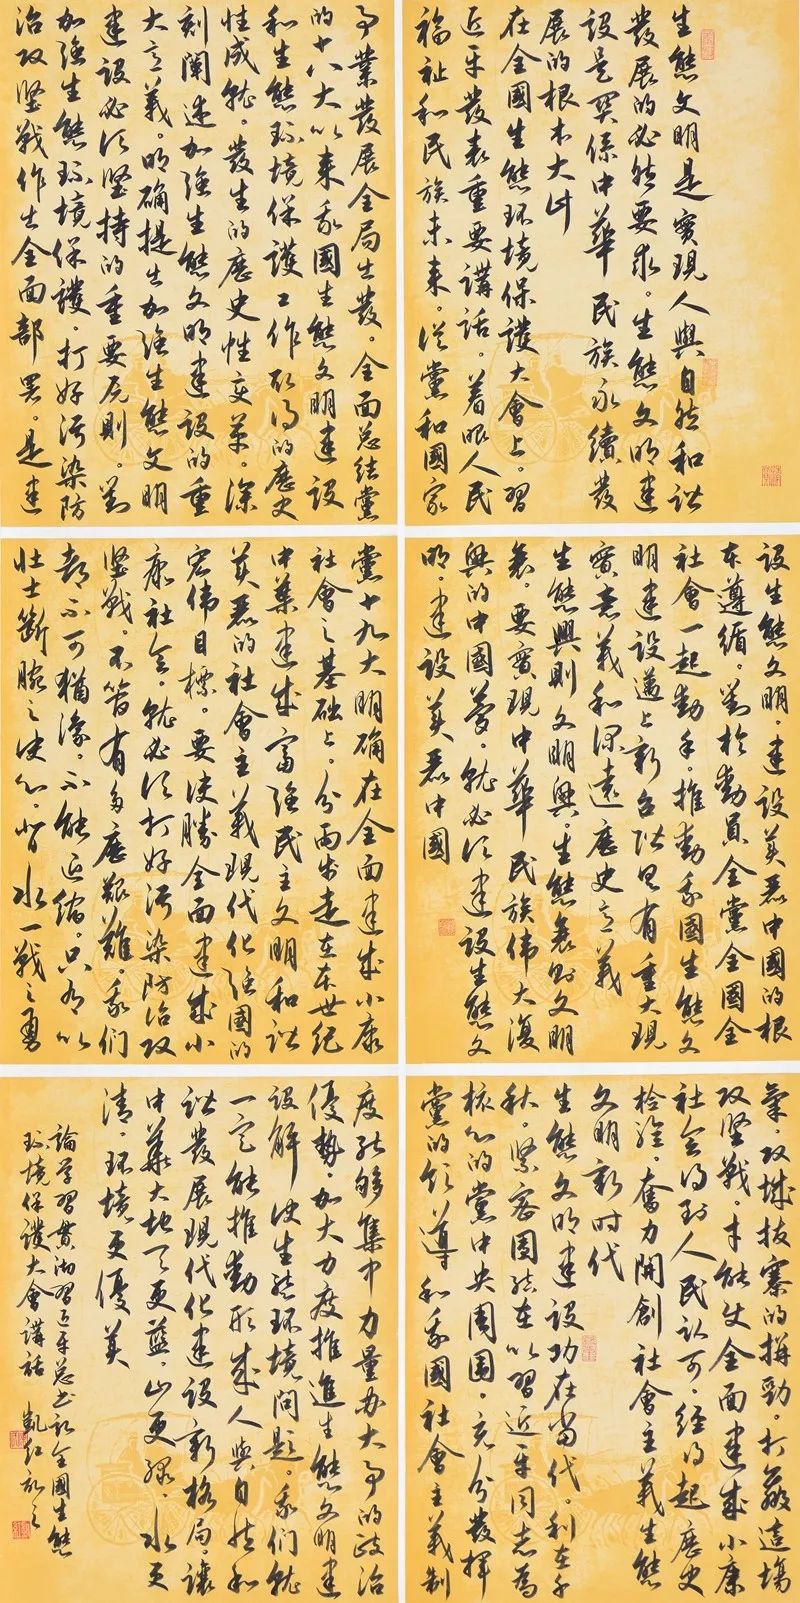 生態文明是實現人與自然和谐
發展的必然要求。生態文明建
設是関係中華民族永續發
展的根本大计
在全國生態环境保護大會上。習
近平發表重要講話。着眼人民
福祉和民族未来。從黨和國家
事業發展全局出發。全面总结黨
的十八大以来我國生態文明建設
和生態环境保護工作取得的歷史
性成就。發生的歷史性变革。深
刻阐述加強生態文明建設的重
大意義。明确提出加強生態文明
建設必须坚持的重要原則。對
加強生態环境保護。打好污染防
治攻坚戰作出全面部署。是建
設生態文明。建設美麗中國的根
本遵循。對於動員全黨全國全
社會一起動手。推動我國生態文
明建設邁上新台階具有重大現
實意義和深遠歷史意義
生態興則文明興。生態衰則文明
衰。要實現中華民族偉大復
興的中國夢。就必须建設生態文
明。建設美麗中國
黨十九大明确在全面建成小康
社會之基础上。分兩步走在本世纪
中葉建成富強民主文明和谐
美麗的社會主義現代化強國的
宏偉目標。要决勝全面建成小
康社会。就必须打好污染防治攻
坚戰。不管有多麽艱難。我们
都不可猶豫。不能退缩。只有以
壮士斷腕之决心。背水一戰之勇
氣。攻城拔寨的拼勁。打赢這場
攻坚戰。才能使全面建成小康
社会得到人民认可。经得起歷史
检验。奮力開創社會主義生態
文明新时代
生態文明建設功在当代。利在千
秋。緊密团结在以習近平同志為
核心的黨中央周圍。充分發揮
黨的领導和我國社會主義制
度能够集中力量办大事的政治
優勢。加大力度推進生態文明建
設解决生態环境问題。我们就
一定能推動形成人與自然和
谐發展現代化建設新格局。讓
中華大地天更藍。山更绿。水更
清。环境更優美
論學習貫沏習近平总书记全國生態
环境保護大會講話 凱红敬之